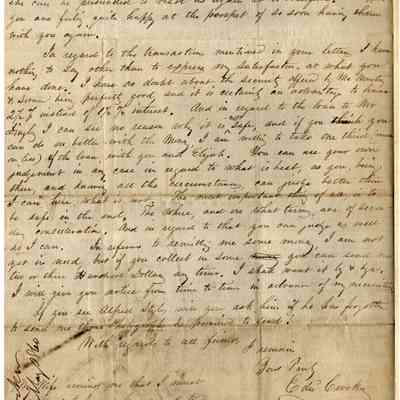 she can be persuaded to
you are fully quite happy at the prospect of so soon having them
with you again.
In regard to the transaction mentioned in your letter I have
nothing to say other than to express my satisfaction at what you
have done. I have no doubt about the security offered by Mr
him perfectly good, and it is certainly an advantage to have
instead of interest. And in regard to the loan to Mr
I can see no reason why it is safe, and if you think you
can do no better with the money, I am willing to take one third,
of the loan, with you and Elijah. You can use your own
judgement in any case in regard to what is best, as you being
there, and knowing all the circumstances, can judge better than
I can here what is The most important of all is to
be safe in the end, The where, and on what terms, are of secon
day consideration. And in regard to that you can judge as well
as I can. In reference to remitting me some money, I am not
yet in need, but if you collect in some you can send me
two or three Hundred Dollars any time. I shall want it by &
I will give you notice from time to time in advance of my necessities
If you see Alfred will you ask him if he has forgotten
to send me those Photographs he promised to send?
With regards to all friends
I remain
Yours Truly
Edw
Wife reminds me that I must